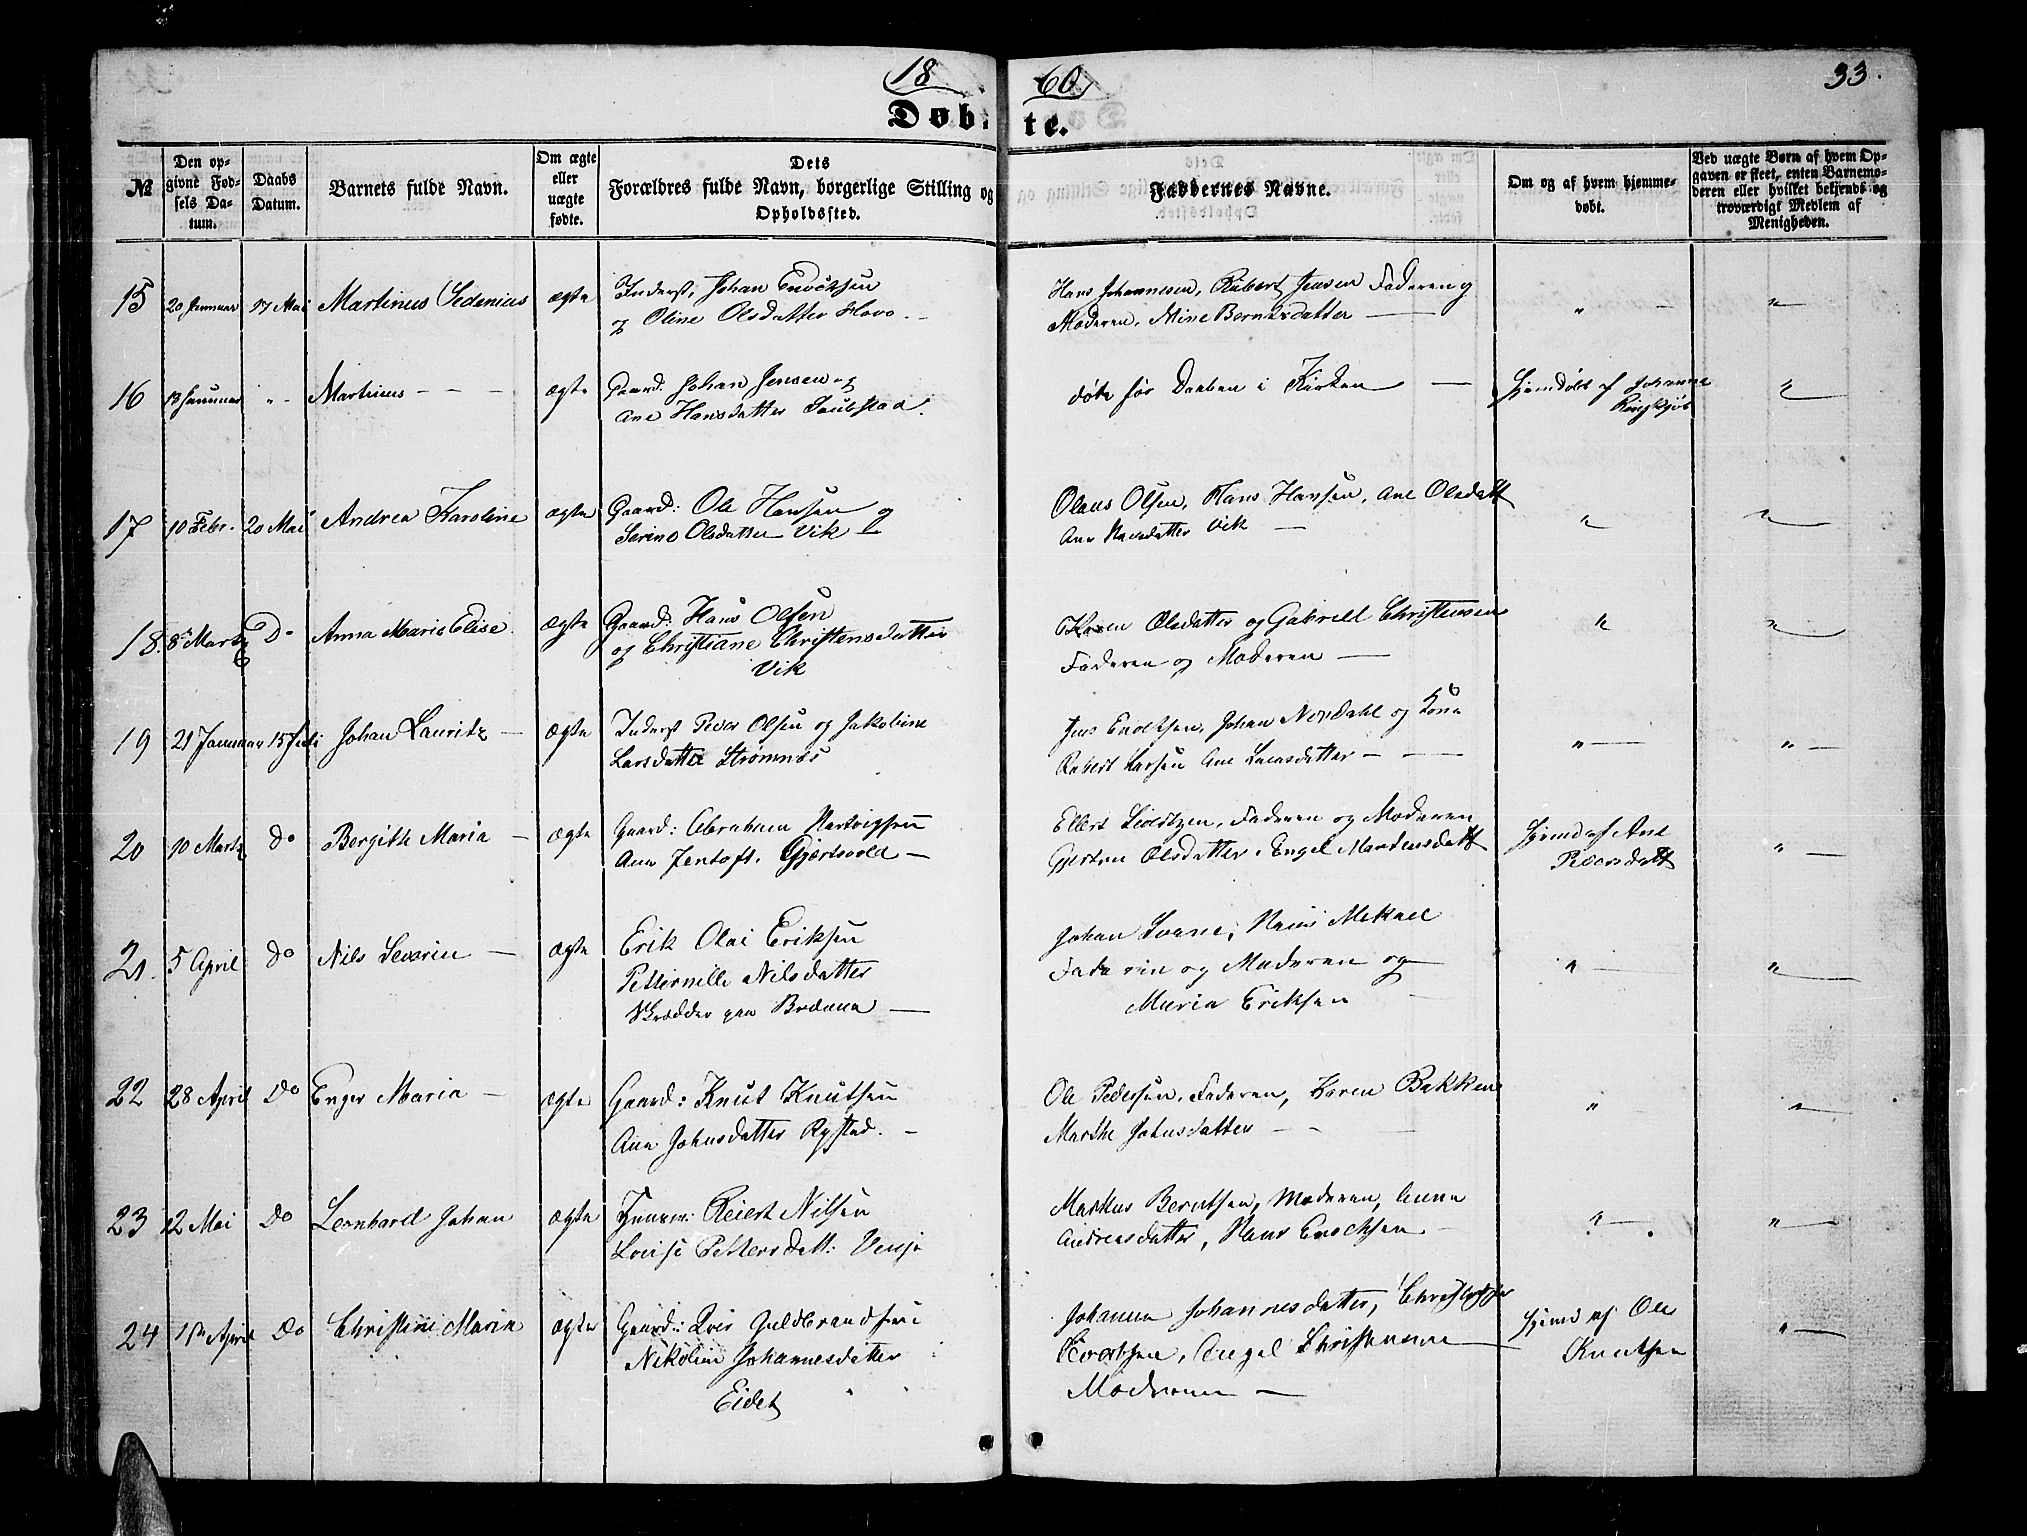 18 60 33.
Døbte.
№
Den opgivne Fødsels Datum.
Daabs Datum.
Barnets fulde Navn.
Om ægte eller uægte fødte.
Dets Forældres fulde Navn, borgerlige Stilling og Opholdssted.
Faddernes Navne.
Om og af hvem hjemmedøbt.
Ved uægte Børn af hvem Opgaven er skeet, enten Barnemoderen eller hvilket bekjendt og troværdigt Medlem af Menigheden.
15 20 Januar 17 Mai Martinus Sedenius ægte Inderst, Johan Enochsen
og Oline Olsdatter Hovo.
Hans Johannesen, Robert Jensen Faderen og
Moderen, Mine Berntsdatter — " "
16 13 Januar " Martinus — ægte Gaard. Johan Jensen og
Ane Hansdatter
døde før Daaben i Kirken — Hjemdøbt af Johanna
"
17 10 Febr. 20 Mai Andrea Karoline ægte Gaard: Ole Hansen og
Serine Olsdatter Vik
Olaus Olsen, Hans Hansen, Ane Olsdatt
Ane Hansdatter Vik — " "
18. 8 Marts Do Anna Marie Elise ægte Gaard: Hans Olsen
og Christiane Christensdatter
Vik
Karen Olsdatter og Gabriell Christensen
Faderen og Moderen — " "
19 21 Januar 15 Juli Johan Lauritz — ægte Inderst Peder Olsen og Jakobine
Larsdatter Strømnes
Jens Enoksen, Johan Nordahl og Kone
Robert Larsen Ane Larsdatter — " "
20 10 Marts Do Bergith Maria — ægte Gaard: Abraham Hartvigsen
Ane Jentoft, Gjertsvold —
Ellert, Faderen og Moderen
Gjertru Olsdatter, Engel Mortensdatt
Hjemd af Ane
Pedersdatt "
21. 5 April Do Nils Severin — ægte Erik Olai Eriksen
Petternille Nilsdatter
Skrædder paa
Johan, Hans Mekael
Faderen og Moderen og
Maria Eriksen " "
22 28 April Do Enger Maria — ægte Gaard: Knut Knutsen
Ane Johnsdatter Rystad. —
Ole Pedersen, Faderen, Karen Bakken
Marthe Johnsdatter — " "
23 2 Mai Do Leonhard Johan ægte Reiert Nilsen
Lovise Pettersdatt:
Markus Berntsen, Moderen, Anne
Andreasdatter, Hans Enochsen " "
24 April Do Christine Maria ægte Gaard: Guldbrandsen
Nikoline Johannesdatter
Eidet
Johanna Johannesdatter,
Engel
Moderen —
Hjemd af Ole
Knutsen "